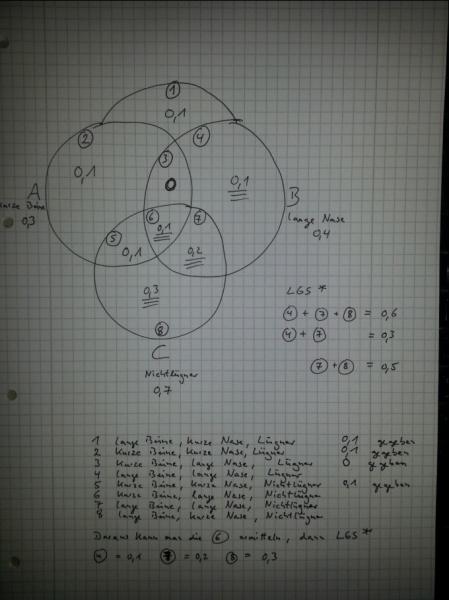 1
0,1
2
4
0,1
3
0
0,1
A
Kurze Beine
0,3
B
lange Nase
0,4
6
7
0,1
5
0,1
0,2
0,3
8
C
Nichtlügner
0,7
LGS *
4 + 7 + 8 = 0,6
4 + 7 = 0,3
7 + 8 = 0,5
1 lange Beine, Kurze Nase, Lügner 0,1 gegeben
2 Kurze Beine, Kurze Nase, Lügner 0,1 gegeben
3 Kurze Beine, lange Nase, Lügner 0 gegeben
4 lange Beine, lange Nase, Lügner
5 Kurze Beine, Kurze Nase, Nichtlügner 0,1 gegeben
6 Kurze Beine, lange Nase, Nichtlügner
7 lange Beine, lange Nase, Nichtlügner
8 lange Beine, Kurze Nase, Nichtlügner
Daraus kann man die 6 ermitteln, dann LGS *
4 = 0,1 7 = 0,2 8 = 0,3